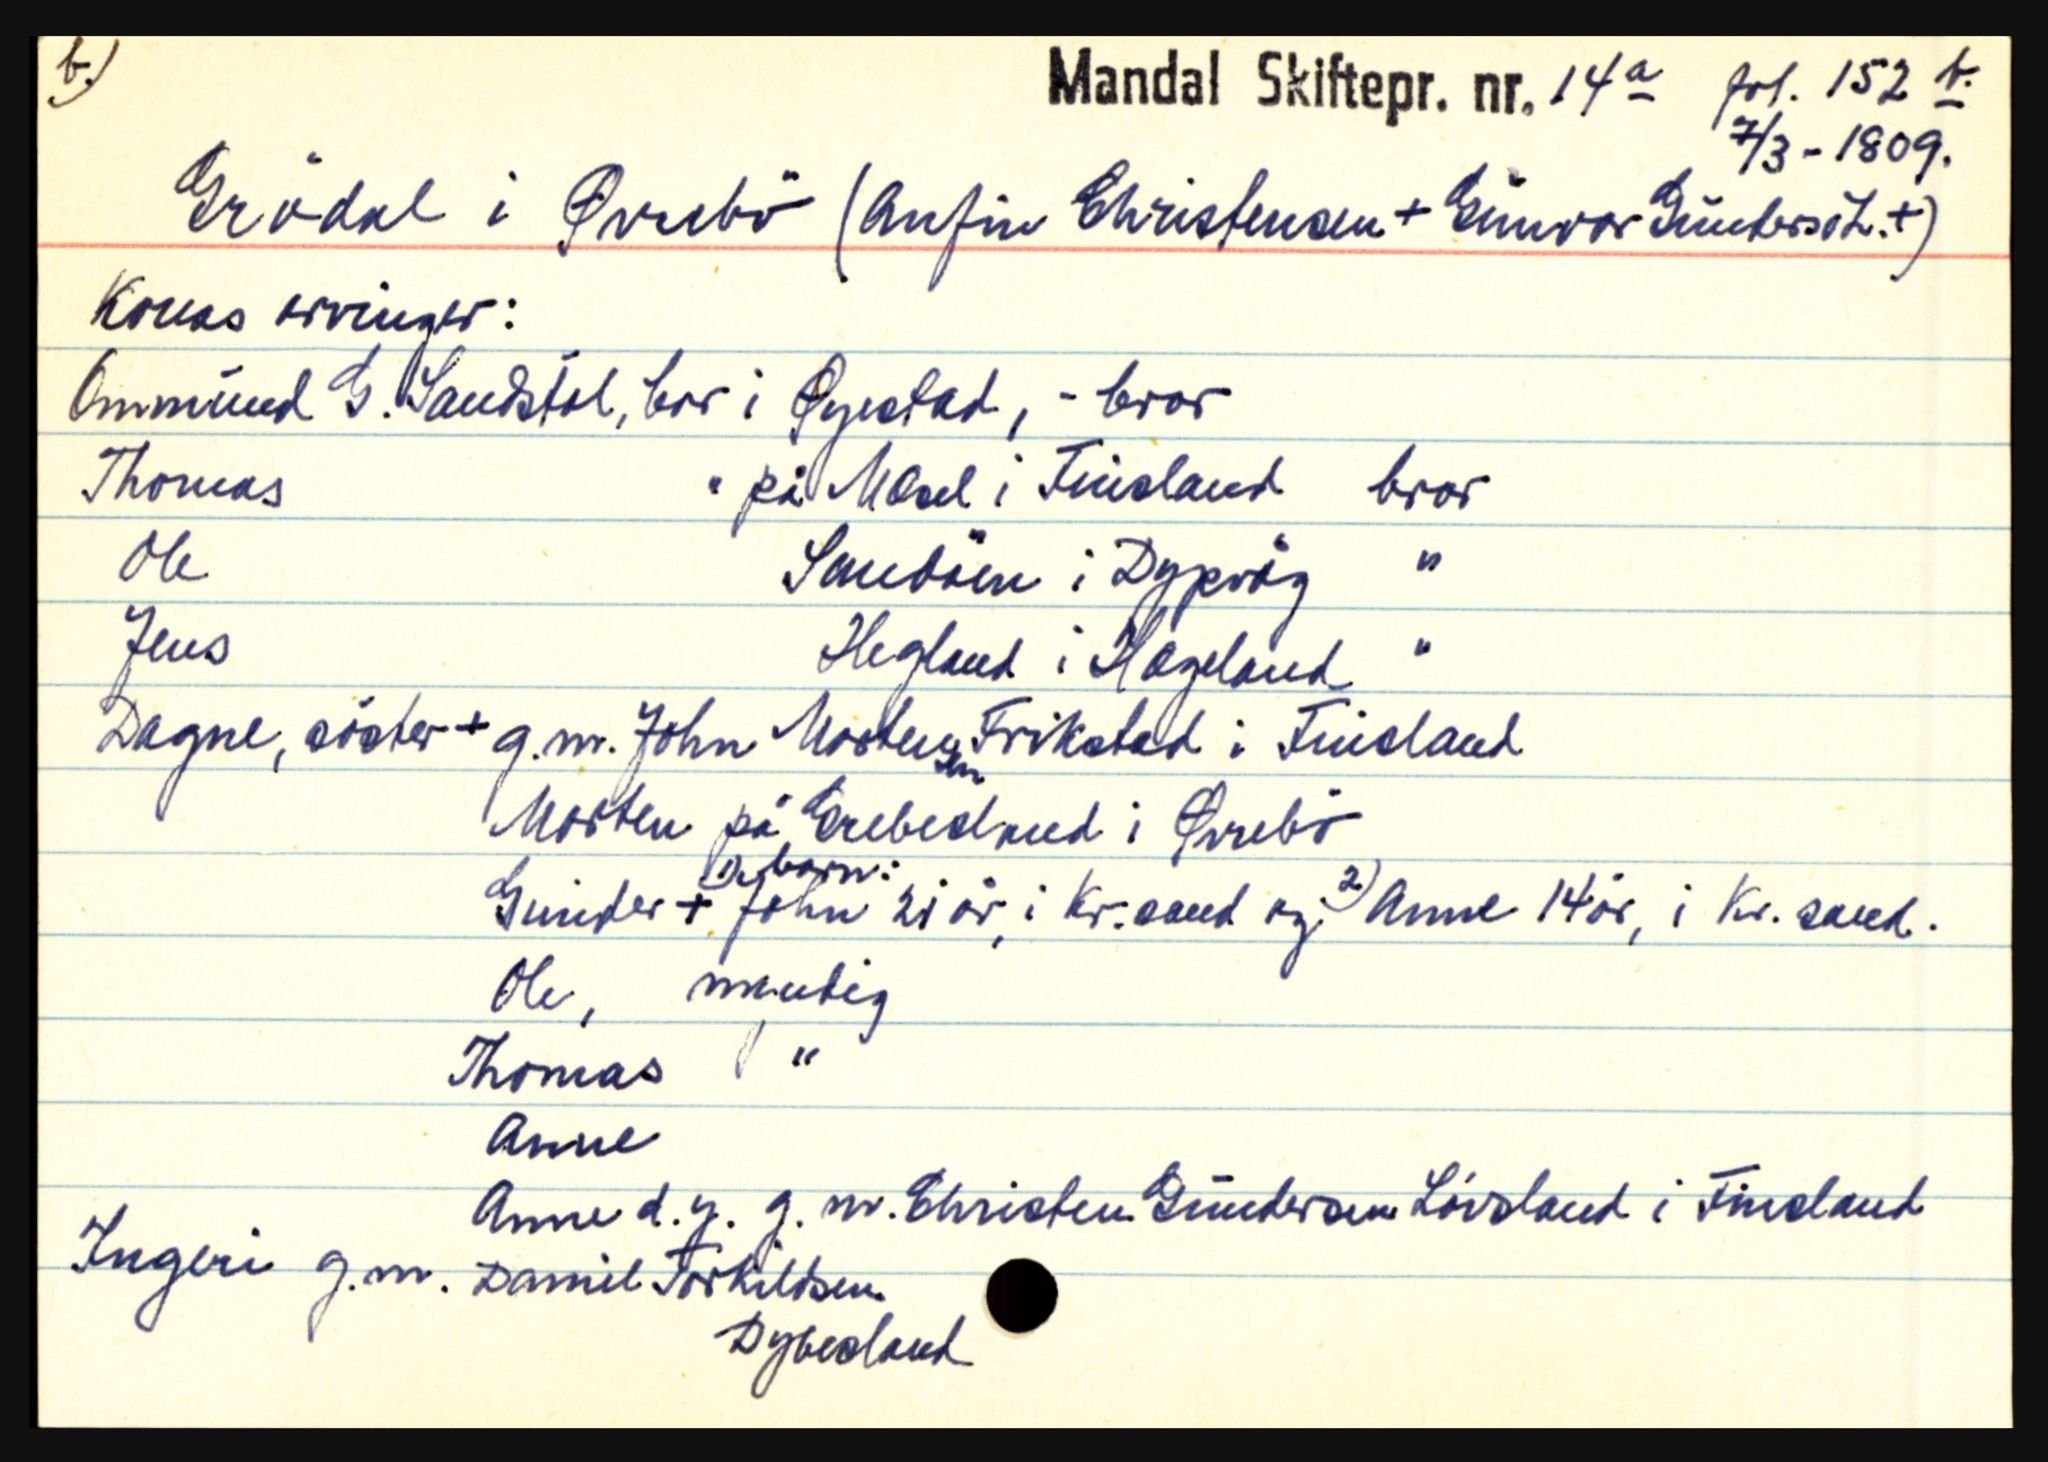 b.)
Mandal Skiftepr. nr. 14a fol. 152 b.
7/3 - 1809.
Grödal i Øvrebö (Anfin Christensen + Günvor Gündersdt. +)
Konas arvinger:
Ommünd G. Sandstöl, bor i Øyestad, - bror
Thomas " på Mæsel i Finsland bror
Ole Sandöen i Dypvåg "
Jens Hegland i Hægeland "
Dagne, söster + g.m. John Mortensen Frikstad i Finsland
Morten på Grebesland i Øvrebö
Gunder + De barn: 1) John 21 år, i Kr.sand og 2) Anne 14 år, i Kr. sand.
Ole, myndig
Thomas "
Anne
Anne d.y. g.m. Christen Gündersen Lövsland i Finsland
Ingeri g.m. Daniel Torkildsen
Dybesland